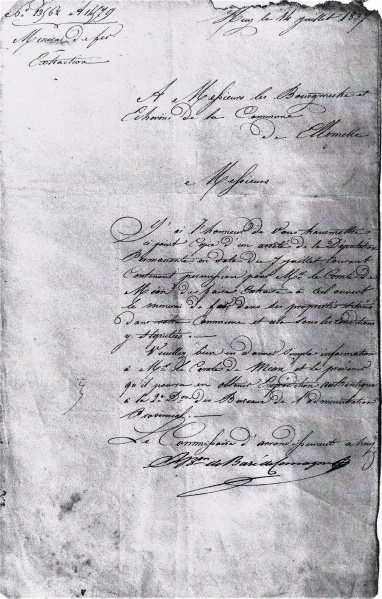 Huy le 14 juillet 18
Minerai de fer
Extraction
A Messieurs les Bourgmestre et
Echevins de la Commune
de Ellemelle
Messieurs
J'ai l'honneur de vous transmettre
ci joint Copie d'un arrêté de la Députation
Permanente en date du 7 juillet Courant
Contenant permission pour Mr. le Comte de
Méan de faire Extraire à Ciel ouvert
le minerai de fer dans les propriétés situées
dans votre Commune et cela sous les Conditions
y stipulées.
Veuillez bien en donner simple information
à Mr. le Comte de Méan et le prévenir
qu'il pourra en obtenir Expédition authentique
à la 2e Don. des Bureaux de l'administration
Provinciale.
Le Commissaire d'arrondissement à Huy
Bon de Baré de Comogne